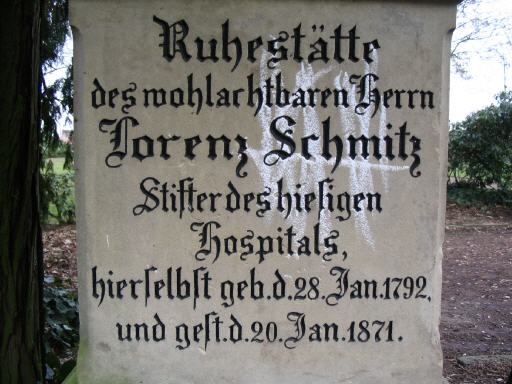 Ruheſtätte
des wohlachtbaren Herrn
Lorenz Schmitz
Stifter des hieſigen
Hospitals,
hierſelbſt geb. d. 28. Jan. 1792,
und geſt. d. 20. Jan. 1871.